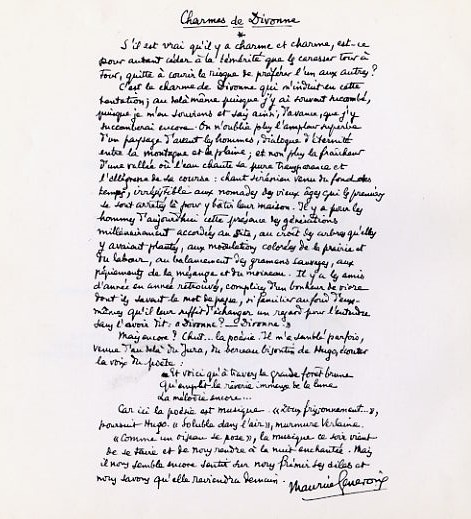 Charmes de Divonne
*
S'il est vrai qu'il y a charme et charme, est-ce
pour autant céder à la témérité que le caresser tour à
tour, quitte à courir le risque de préférer l'un aux autres ?
C'est le charme de Divonne qui m'induit en cette
tentation ; au delà même puisque j'y ai souvent succombé,
puisque je m'en souviens et sais ainsi, d'avance, que j'y
succomberai encore. On n'oublie plus l'ampleur superbe
d'un paysage d'avant les hommes, dialogue d'éternité
entre la montagne et la plaine ; et non plus la fraîcheur
d'une vallée où l'eau chante sa pure transparence et
l'allégresse de sa course : chant sirénien venu du fond des
temps, irrésistible aux nomades des vieux âges qui les premiers
se sont arrêtés là pour y bâtir leur maison. Il y a pour les
hommes d'aujourd'hui cette présence des générations
millénairement accordées au site, au croît des arbres qu'elles
y avaient plantés, aux modulations colorées de la prairie et
du labour, au balancement des gramens sauvages, aux
pépiements de la mésange et du moineau. Il y a les amis
d'année en année retrouvés, complices d'un bonheur de vivre
dont ils savent le mot de passe, si familier au fond d'eux-
mêmes qu'il leur suffit d'échanger un regard pour l'entendre
sans l'avoir dit : « Divonne ? — Divonne. »
Mais encore ? Chut... la poésie. Il m'a semblé parfois,
venue d'au delà du Jura, du berceau bisontin de Hugo, écouter
la voix du poète :
« Et voici qu'à travers la grande forêt brune
Qu'emplit la rêverie immense de la lune
La mélodie encore...
Car ici la poésie est musique. « frissonnement... »,
poursuit Hugo. « Soluble dans l'air », murmure Verlaine.
« Comme un oiseau se pose », la musique ce soir vient
de se taire et de nous rendre à la nuit enchantée. Mais
il nous semble encore sentir sur nous frémir ses ailes et
nous savons qu'elle reviendra demain. Maurice Genevoix